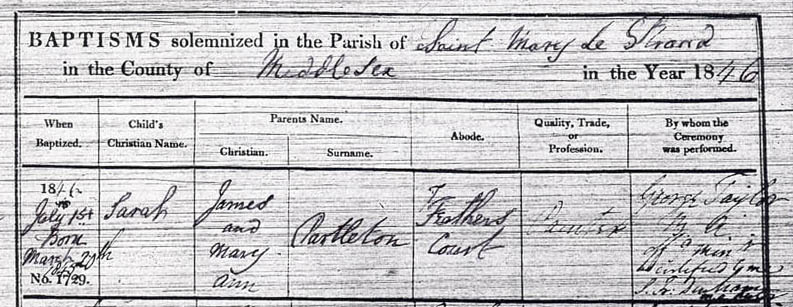 BAPTISMS solemnized in the Parish of Saint Mary Le Strand
in the County of Middlesex in the Year 1846
When Baptized.
Child's Christian Name.
Parents Name.
Christian.
Surname.
Abode.
Quality, Trade, or Profession.
By whom the Ceremony was performed.
1846
July 1st
Born
March
No. 1729.
Sarah
James
and
Mary
Ann
Partleton
Feathers
Court
George Taylor